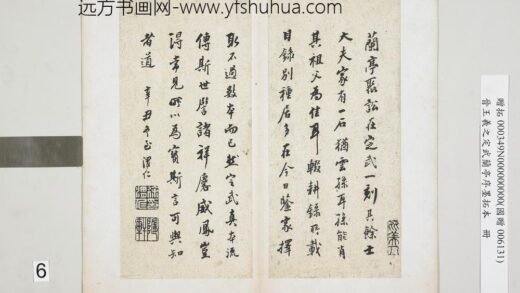 远方书画网-www.yfshuhua.com
蘭亭聚訟在定武一刻其餘士
大夫家有一石猶雲孫耳孫能肖
其祖父為佳耳輟耕錄所載
目錄別種居多在今日鑒家擇
取不過數本而已然定武真本流
傳斯世學諸祥麐威鳳豈
得常見所以為寶斯言可與知
者道 辛丑
贈拓 000349N000000000(國贈 006131)
晉王羲之定武蘭亭序墨拓本 冊
6